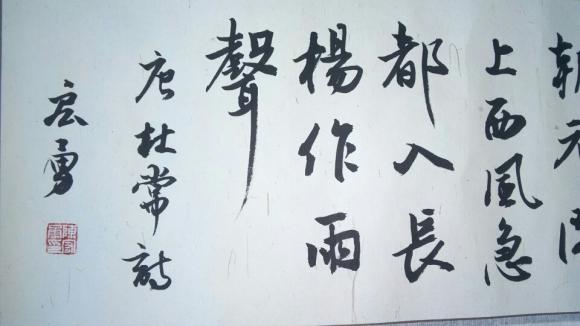 朝元閣
上西風急
都入長
楊作雨
聲
唐杜常詩
宏勇